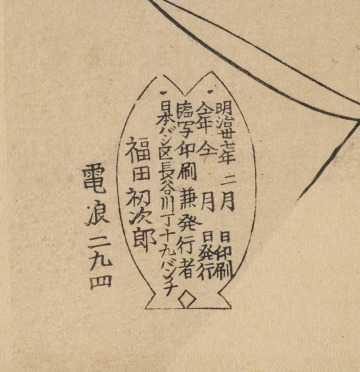 明治卅七年二月　日印刷
仝年仝　月　日発行
臨写印刷兼発行者
日本バシ区長谷川丁十九バンチ
福田初次郎
電浪二九四